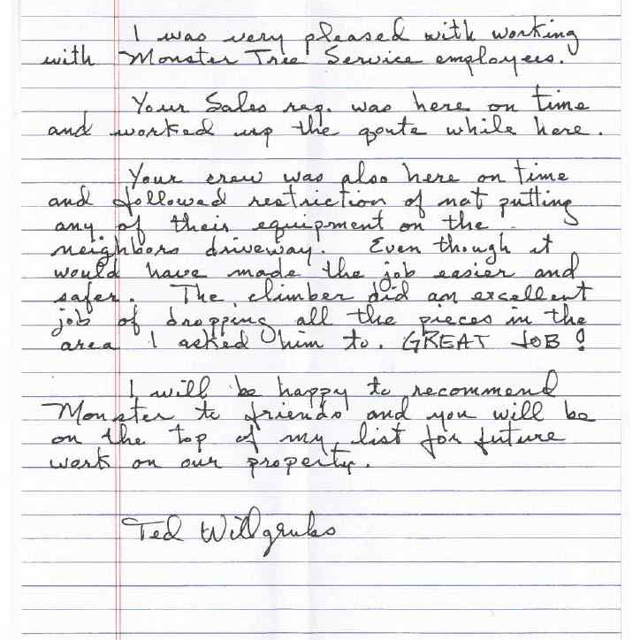 I was very pleased with working
with Monster Tree Service employees.
Your Sales rep. was here on time
and worked up the qoute while here.
Your crew was also here on time
and followed restriction of not putting
any of their equipment on the
neighbors driveway. Even though it
would have made the job easier and
safer. The climber did an excellent
job of dropping all the pieces in the
area I asked him to. GREAT JOB!
I will be happy to recommend
Monster to friends and you will be
on the top of my list for future
work on our property.
Ted